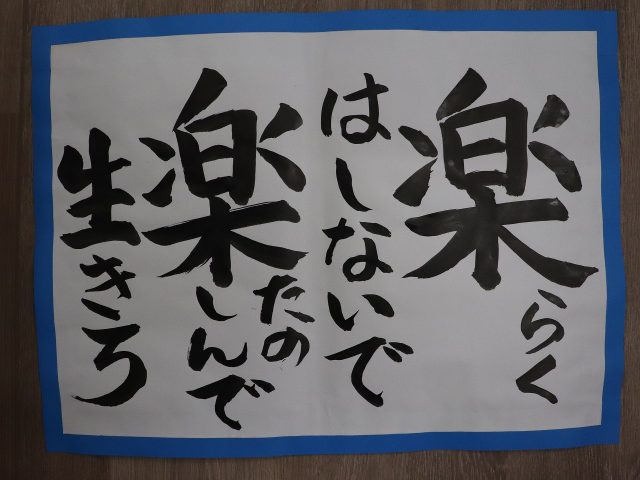 楽らく
はしないで
楽たのしんで
生きろ